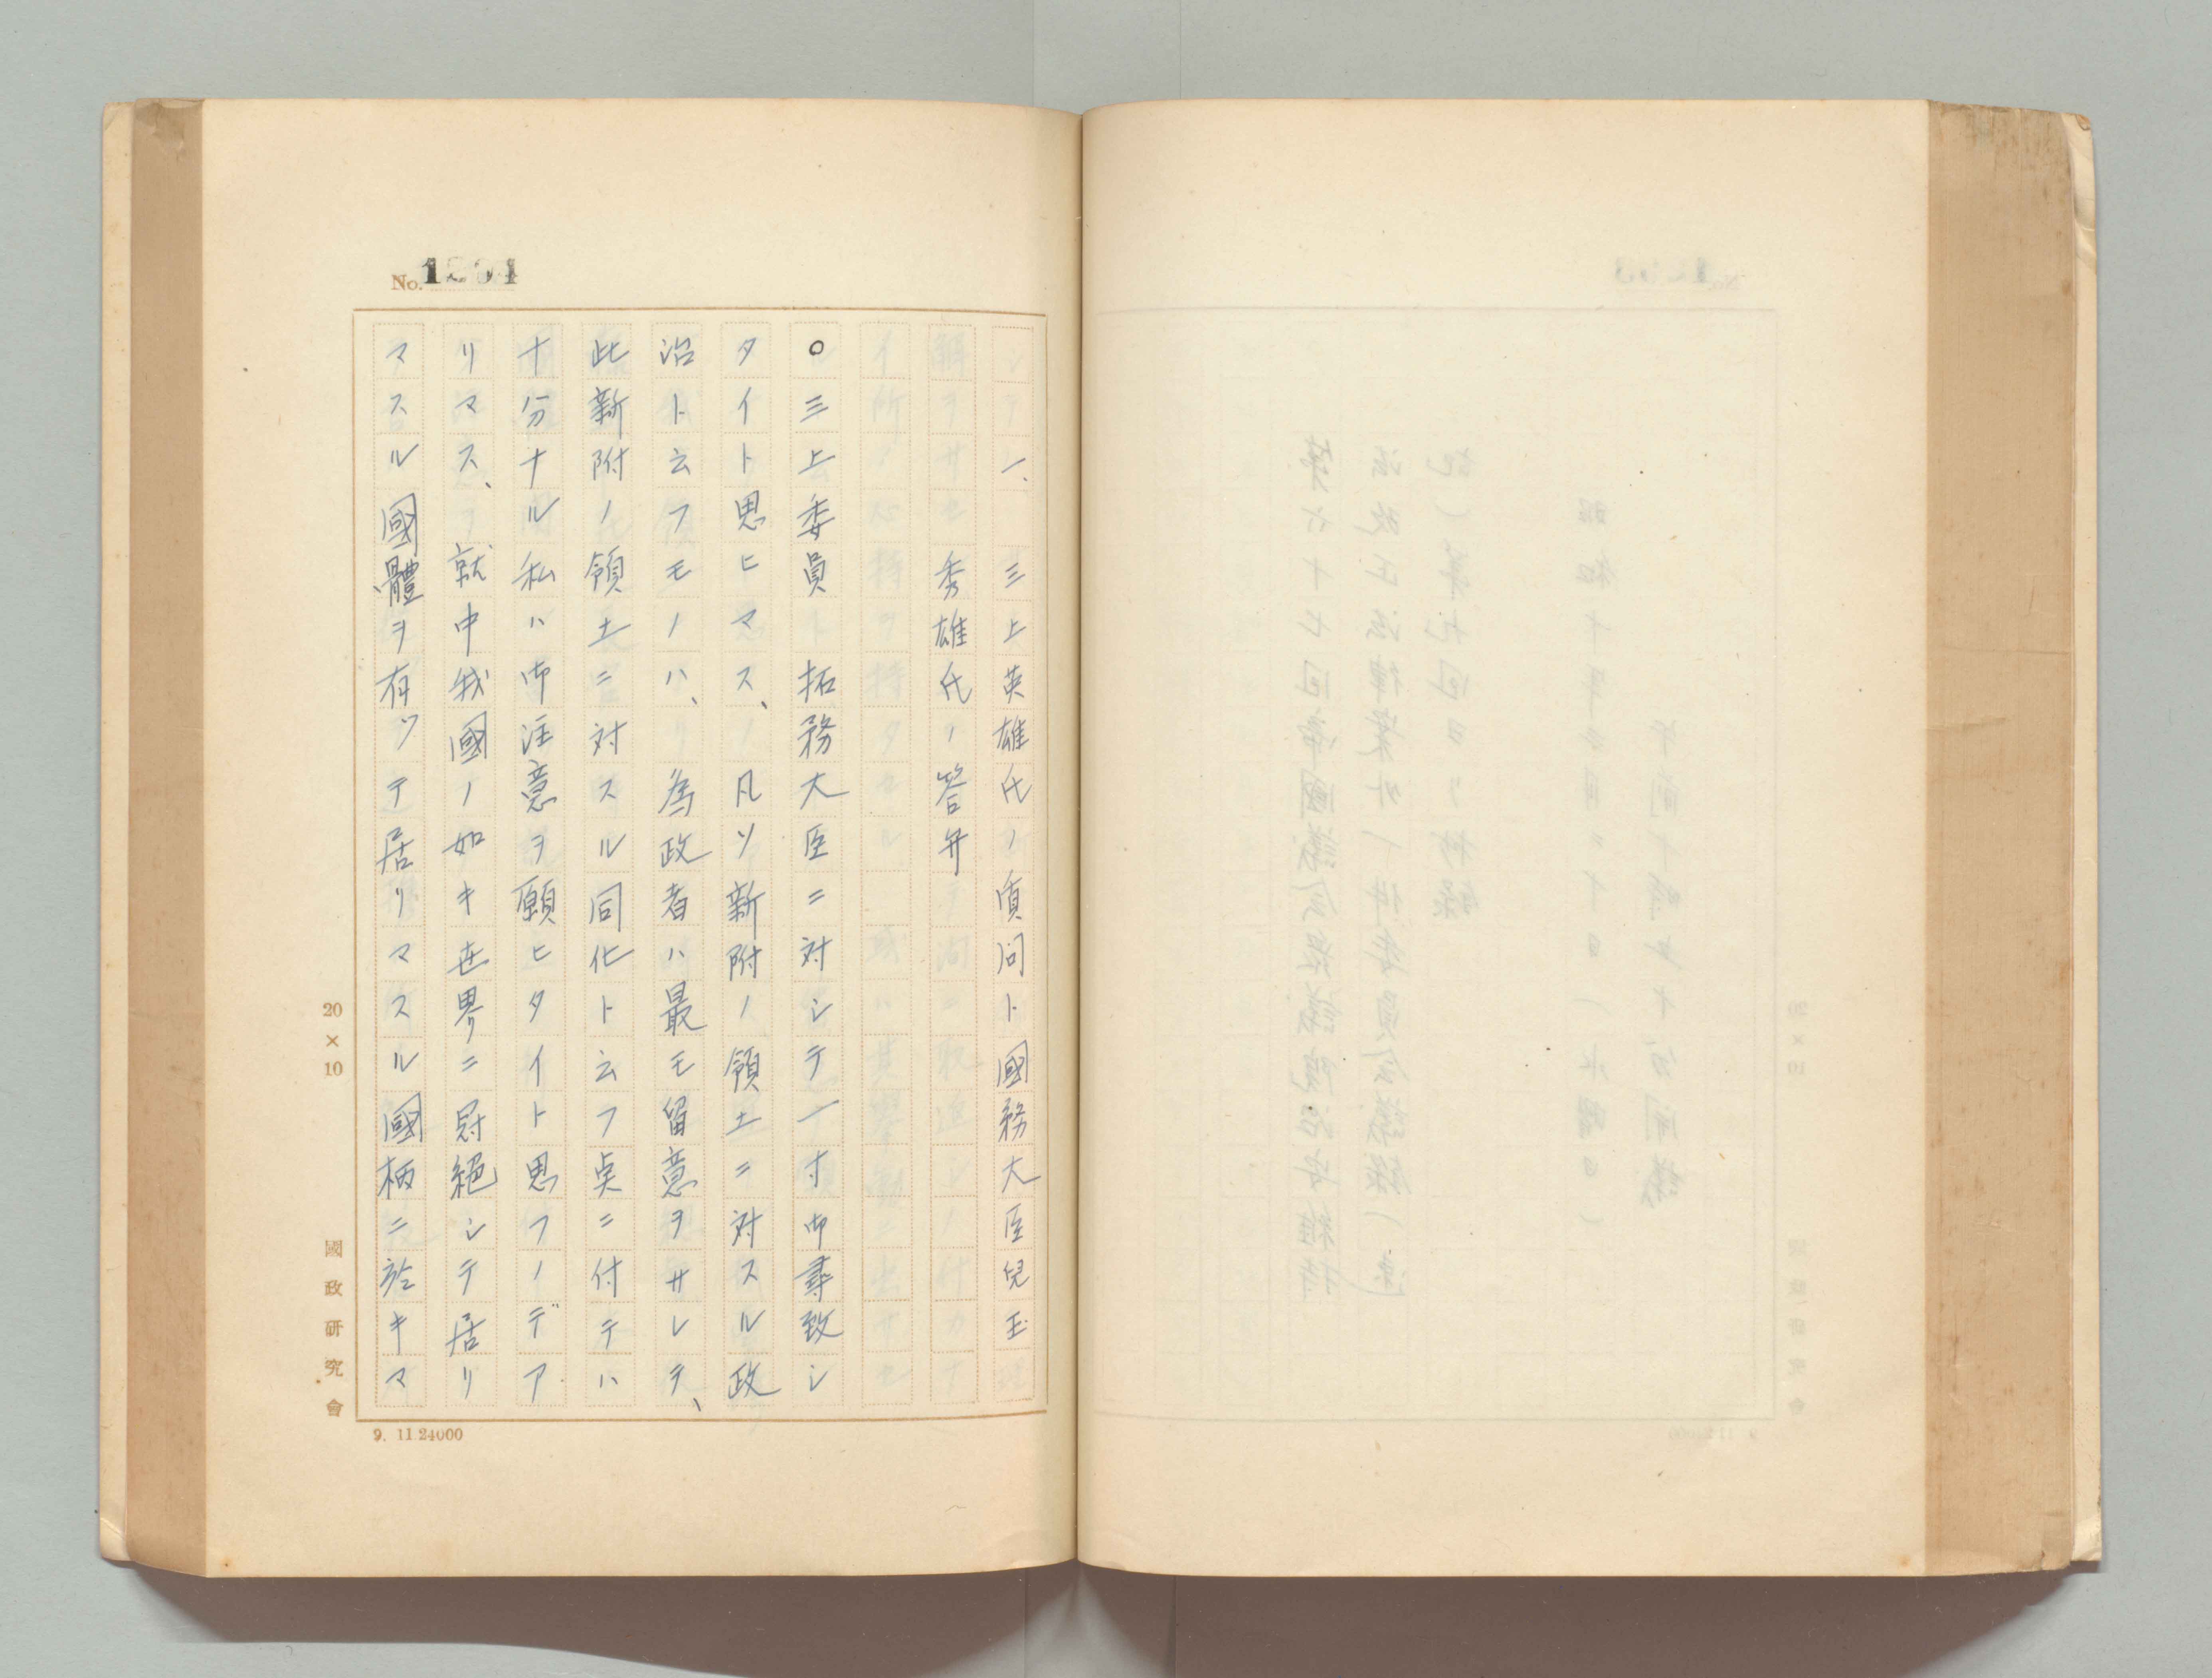 No. 1204
一、 三上英雄氏ノ質問ト國務大臣兒玉
秀雄氏ノ答弁
○三上委員 拓務大臣ニ対シテ一寸御尋致シ
タイト思ヒマス、凡ソ新附ノ領土ニ対スル政
治ト云フモノハ、為政者ハ最モ留意ヲサレテ、
此新附ノ領土ニ対スル同化ト云フ点ニ付テハ
十分ナル私ハ御注意ヲ願ヒタイト思フノデア
リマス、就中我國ノ如キ世界ニ冠絕シテ居リ
マスル國體ヲ有ツテ居リマスル國柄ニ於キマ
20×10
國政研究會
9. 11.24000